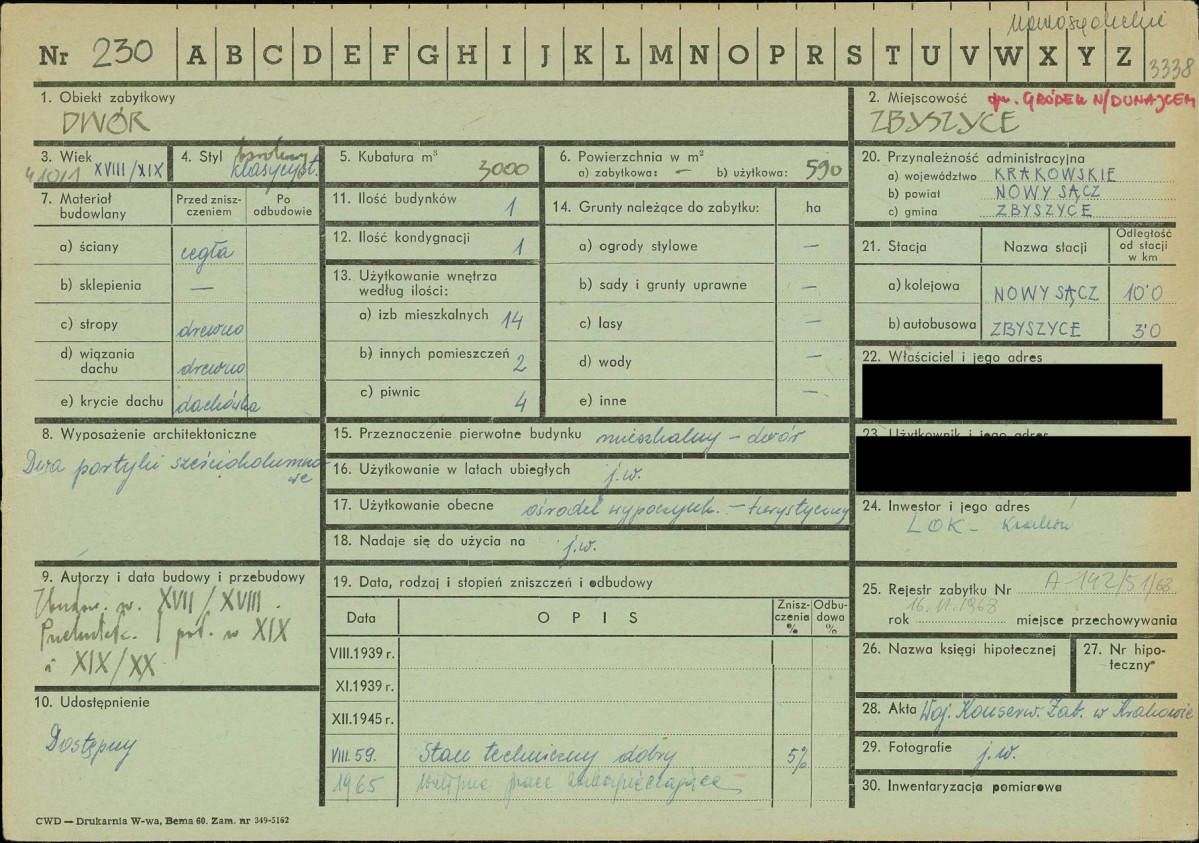 nowosądeckie
Nr 230 A B C D E F G H I J K L M N O P R S T U V W X Y Z 3338
1. Obiekt zabytkowy
DWÓR
2. Miejscowość gm. GRÓDEK N/DUNAJCEM
ZBYSZYCE
3. Wiek
XVIII/XIX
4. Styl barokowy
klasycyst.
5. Kubatura m³
3000
6. Powierzchnia w m²
a) zabytkowa: — b) użytkowa: 590
7. Materiał budowlany
Przed zniszczeniem
Po odbudowie
a) ściany cegła
b) sklepienia —
c) stropy drewno
d) wiązania dachu drewno
e) krycie dachu dachówka
8. Wyposażenie architektoniczne
Dwa portyki sześciokolumno
we
9. Autorzy i data budowy i przebudowy
Zbudow. w. XVII/XVIII.
I poł. w XIX
i XIX/XX
10. Udostępnienie
Dostępny
11. Ilość budynków 1
12. Ilość kondygnacji 1
13. Użytkowanie wnętrza
według ilości:
a) izb mieszkalnych 14
b) innych pomieszczeń 2
c) piwnic 4
14. Grunty należące do zabytku: ha
a) ogrody stylowe —
b) sady i grunty uprawne —
c) lasy —
d) wody —
e) inne —
15. Przeznaczenie pierwotne budynku mieszkalny – dwór
16. Użytkowanie w latach ubiegłych j.w.
17. Użytkowanie obecne ośrodek wypoczynk. – turystyczny
18. Nadaje się do użycia na j.w.
19. Data, rodzaj i stopień zniszczeń i odbudowy
Data
O P I S
Zniszczenia %
Odbudowa %
VIII.1939 r.
XI.1939 r.
XII.1945 r.
VIII.59. Stan techniczny dobry 5%
1965 wstępne prace zabezpieczające
20. Przynależność administracyjna
a) województwo KRAKOWSKIE
b) powiat NOWY SĄCZ
c) gmina ZBYSZYCE
21. Stacja
Nazwa stacji
Odległość od stacji w km
a) kolejowa NOWY SĄCZ 10'0
b) autobusowa ZBYSZYCE 3'0
22. Właściciel i jego adres
23. Użytkownik i jego adres
24. Inwestor i jego adres
LOK – Kraków
25. Rejestr zabytku Nr A-192/51/68
16.11.1968
rok miejsce przechowywania
26. Nazwa księgi hipotecznej
27. Nr hipoteczny
28. Akta Woj. Konserw. Zab. w Krakowie
29. Fotografie j.w.
30. Inwentaryzacja pomiarowa
CWD — Drukarnia W-wa, Bema 60. Zam. nr 349-5162